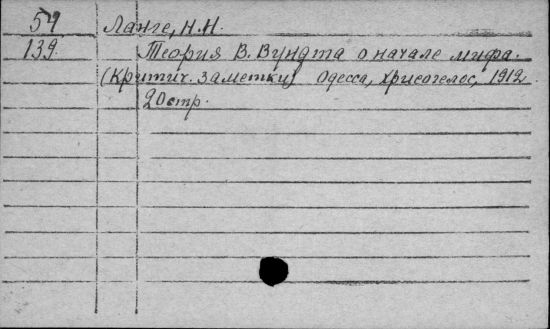 54 Ланге, Н.Н.
139 Теория В. Вундта о начале мифа.
(Критич. заметки) Одесса, Хрисогелос, 1912
20 стр.